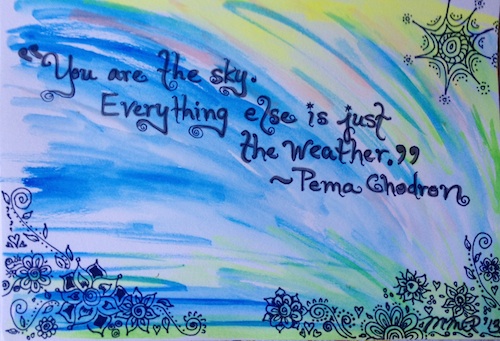 “You are the sky.
Everything else is just
the weather.”
~Pema Chodron